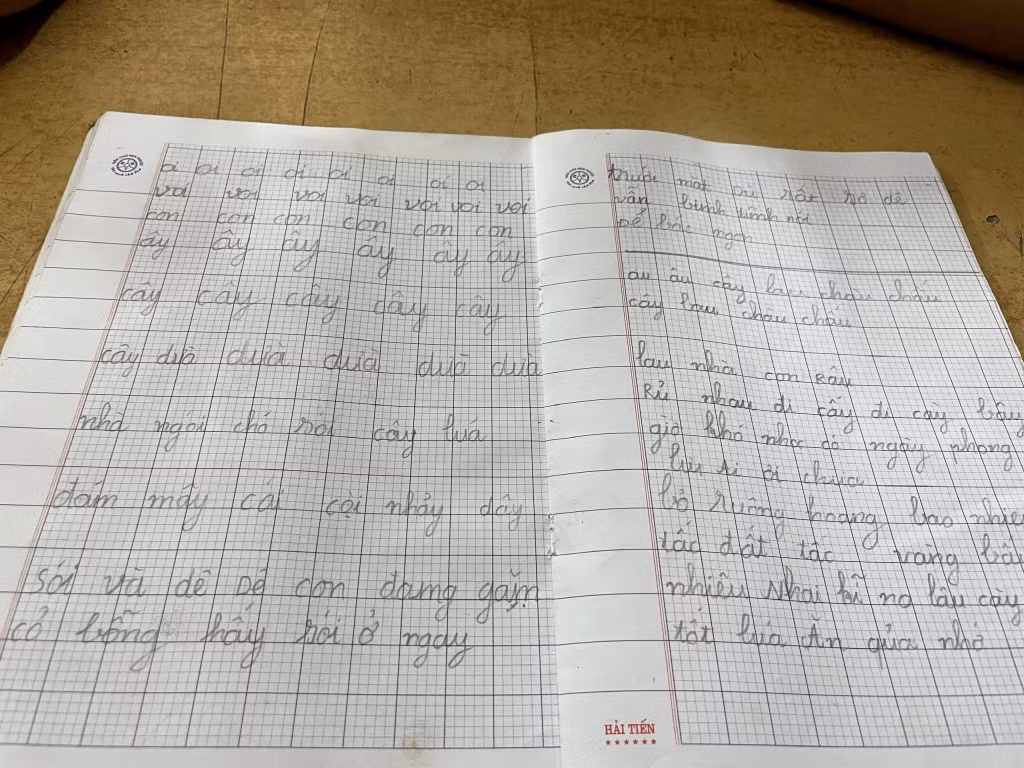 oi oi oi oi oi oi oi oi
voi voi voi voi voi voi voi
con con con con con con
ây ây ây ây ây ây
cây cây cây cây cây
cây dừa dừa dừa dừa dừa
nhà ngói chó sói cây lúa
đám mây cái còi nhảy dây
sói và dê Dê con đang gặm
cỏ bỗng thấy sói ở ngay
trước mắt
vẫn bình tĩnh nói
au âu cây lau châu chấu
cây lau châu chấu
lau nhà con sâu
Rủ nhau đi cấy đi cày bây
giờ khó nhọc có ngày phong
lưu ai ơi chưa
bỏ ruộng hoang bao nhiêu
tấc đất tấc vàng bấy
nhiêu Nhai kĩ no lâu cày
tốt lúa Ăn qủa nhớ
HẢI TIẾN